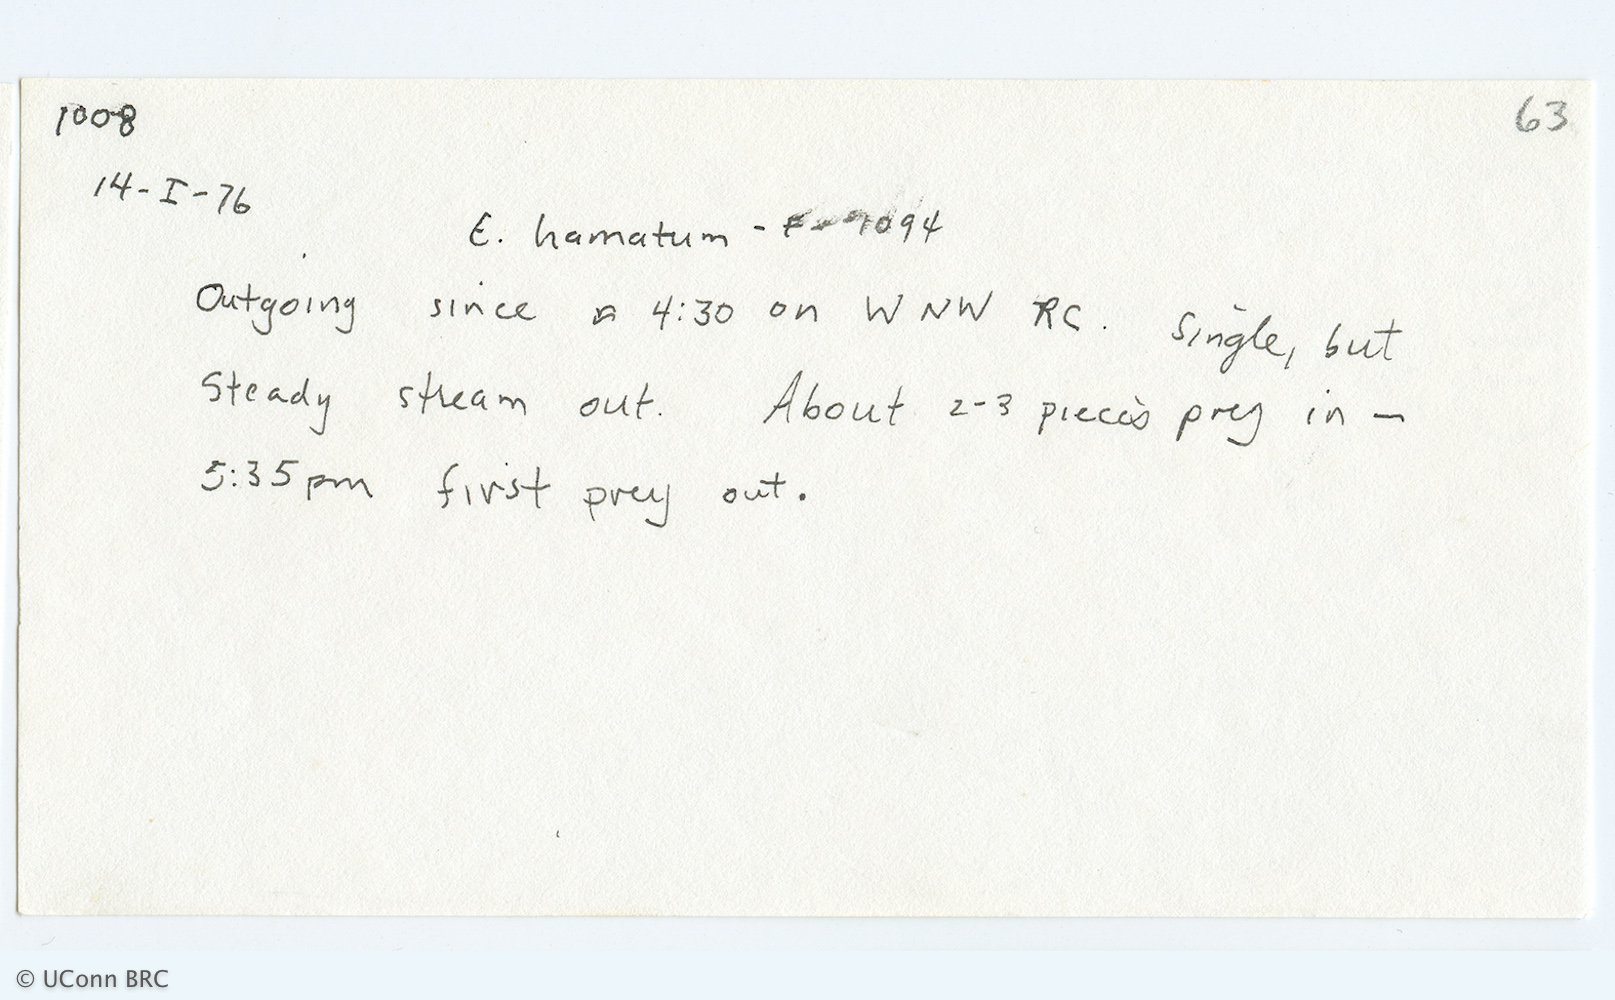 1008
63
14-I-76
E. hamatum - 1094
Outgoing since 4:30 on WNW RC. Single, but
Steady stream out. About 2-3 pieces prey in —
5:35pm first prey out.
© UConn BRC